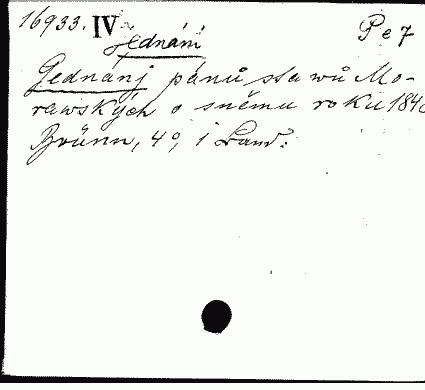 16933. IV Pe7
Jednání
Gednánj pánů stawů Mo-
rawských o sněmu roku 184
Brünn, 4°, 1 Band.